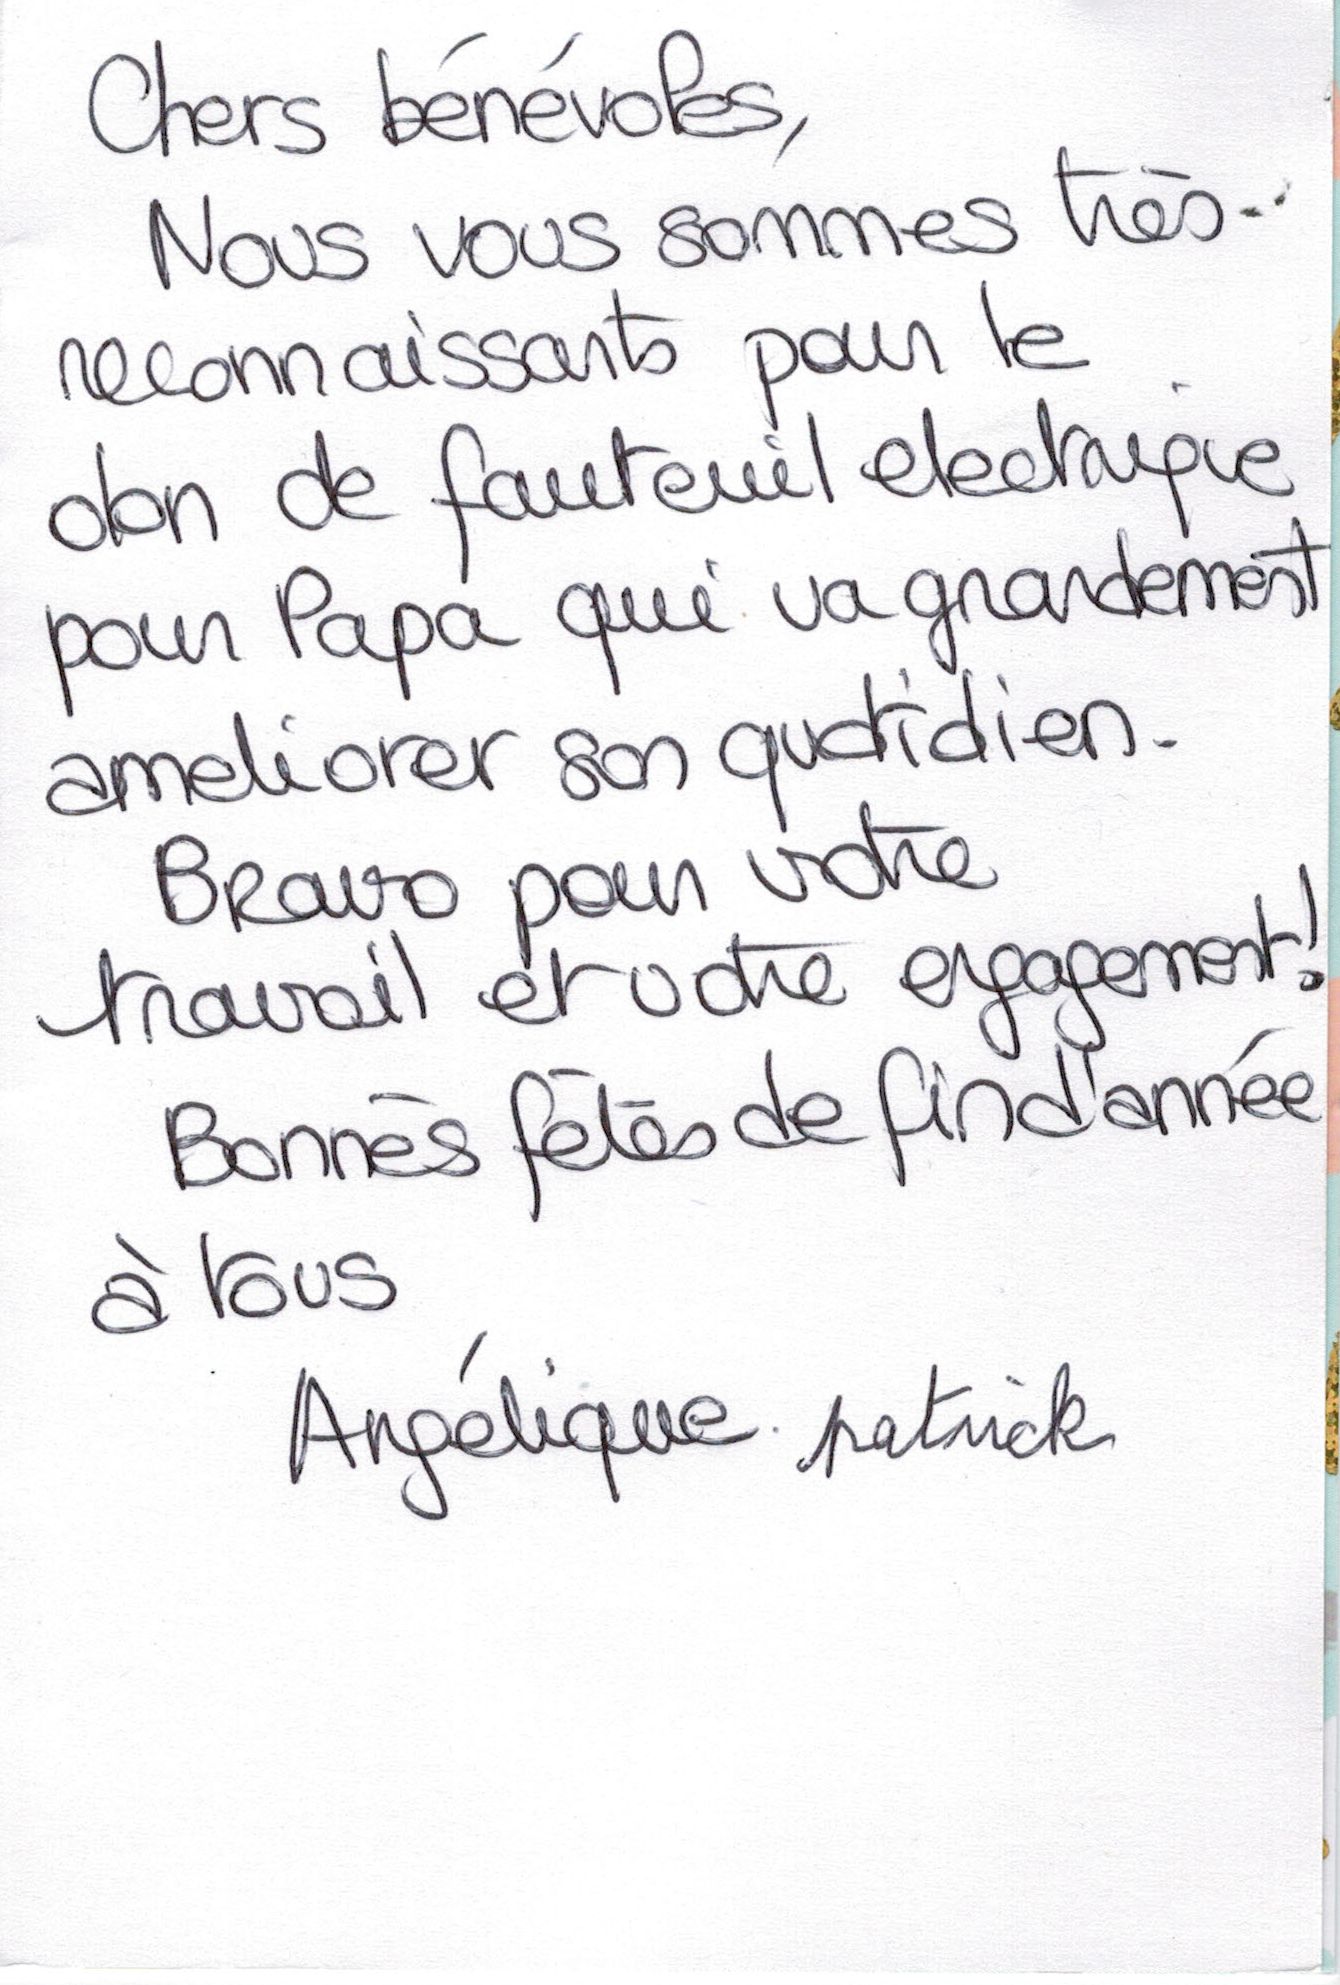 Chers bénévoles,
Nous vous sommes très
reconnaissants pour le
don de fauteuil electrique
pour Papa qui va grandement
ameliorer son quotidien.
Bravo pour votre
travail et votre engagement!
Bonnes fêtes de fin d'année
à tous
Angélique patrick